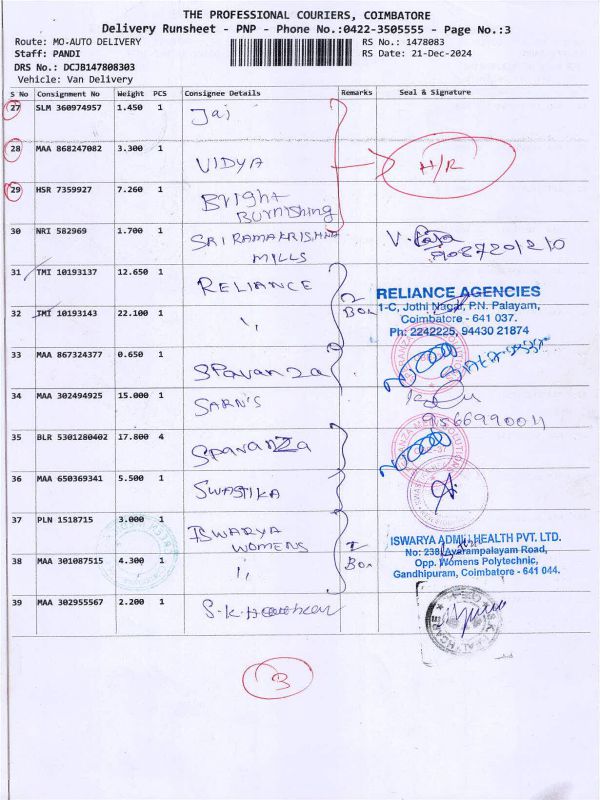 THE PROFESSIONAL COURIERS, COIMBATORE
Delivery Runsheet - PNP - Phone No.:0422-3505555 - Page No.:3
Route: MO-AUTO DELIVERY RS No.: 1478083
Staff: PANDI RS Date: 21-Dec-2024
DRS No.: DCJB147808303
Vehicle: Van Delivery
S No Consignment No Weight PCS Consignee Details Remarks Seal & Signature
27 SLM 360974957 1.450 1 Jai
28 MAA 868247082 3.300 1 VIDYA H/R
29 HSR 7359927 7.260 1 Bright
BURNISHING
30 NRI 582969 1.700 1 SRI RAMAKRISHNA
MILLS
31 TMI 10193137 12.650 1 RELIANCE 2
Box
RELIANCE AGENCIES
1-C, Jothi Nagar, P.N. Palayam,
Coimbatore - 641 037.
Ph: 2242225, 94430 21874
32 TMI 10193143 22.100 1 ,,
33 MAA 867324377 0.650 1 SPavanza
34 MAA 302494925 15.000 1 SARN'S
35 BLR 5301280402 17.800 4 SPavanza
36 MAA 650369341 5.500 1 SWASTIKA
37 PLN 1518715 3.000 1 ISWARYA
WOMENS
Box
ISWARYA ADMIN HEALTH PVT. LTD.
No: 238, Avarampalayam Road,
Opp. Womens Polytechnic,
Gandhipuram, Coimbatore - 641 044.
38 MAA 301087515 4.300 1 ,,
39 MAA 302955567 2.200 1 S.K.Healthcare
3